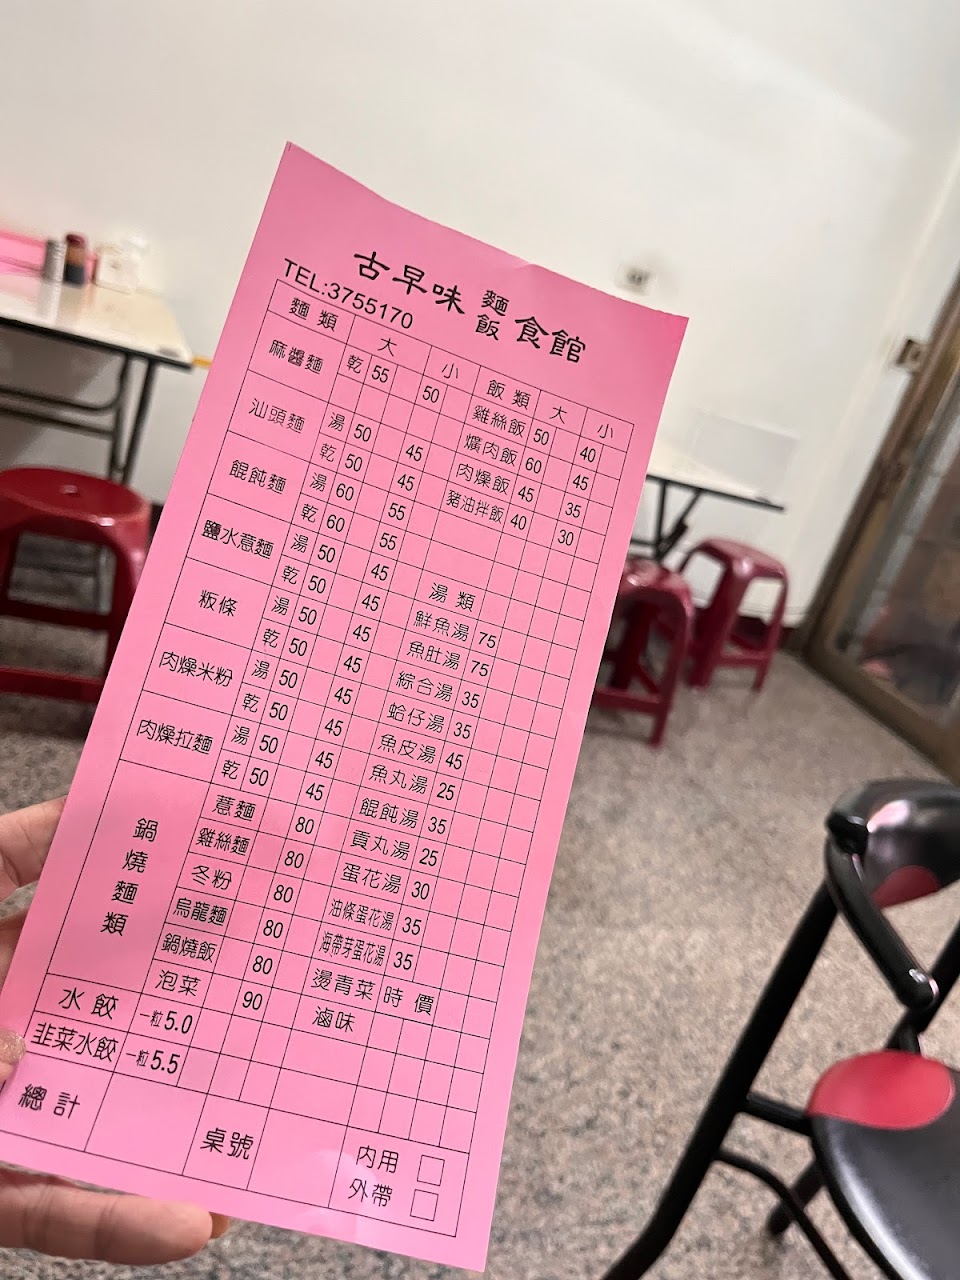 古早味麵飯食館
TEL:3755170
麵類 大 小
麻醬麵 乾 55 50
汕頭麵 湯 50 45
乾 50 45
餛飩麵 湯 60 55
乾 60 55
鹽水薏麵 湯 50 45
乾 50 45
粄條 湯 50 45
乾 50 45
肉燥米粉 湯 50 45
乾 50 45
肉燥拉麵 湯 50 45
乾 50 45
鍋燒麵類
薏麵 80
雞絲麵 80
冬粉 80
烏龍麵 80
鍋燒飯 80
泡菜 90
水餃 一粒5.0
韭菜水餃 一粒5.5
飯類 大 小
雞絲飯 50 40
爌肉飯 60 45
肉燥飯 45 35
豬油拌飯 40 30
湯類
鮮魚湯 75
魚肚湯 75
綜合湯 35
蛤仔湯 35
魚皮湯 45
魚丸湯 25
餛飩湯 35
貢丸湯 25
蛋花湯 30
油條蛋花湯 35
海帶芽蛋花湯 35
燙青菜 時價
滷味
總計
桌號
內用
外帶